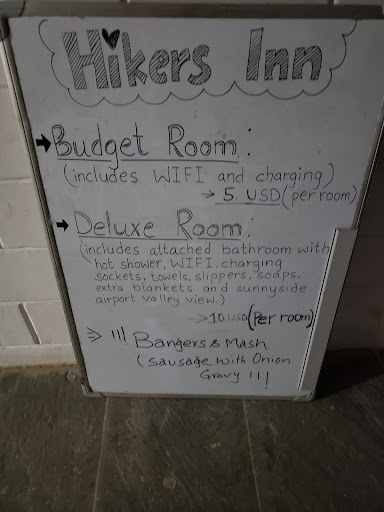 Hikers Inn
Budget Room:
(includes WIFI and charging)
→ 5 USD (per room)
Deluxe Room:
(includes attached bathroom with
hot shower, WIFI. charging
sockets, towels, slippers, soaps.
extra blankets and sunnyside
airport valley view.)
→ 10 USD (Per room)
⇒ !!! Bangers & Mash
(Sausage with Onion
Gravy !!!